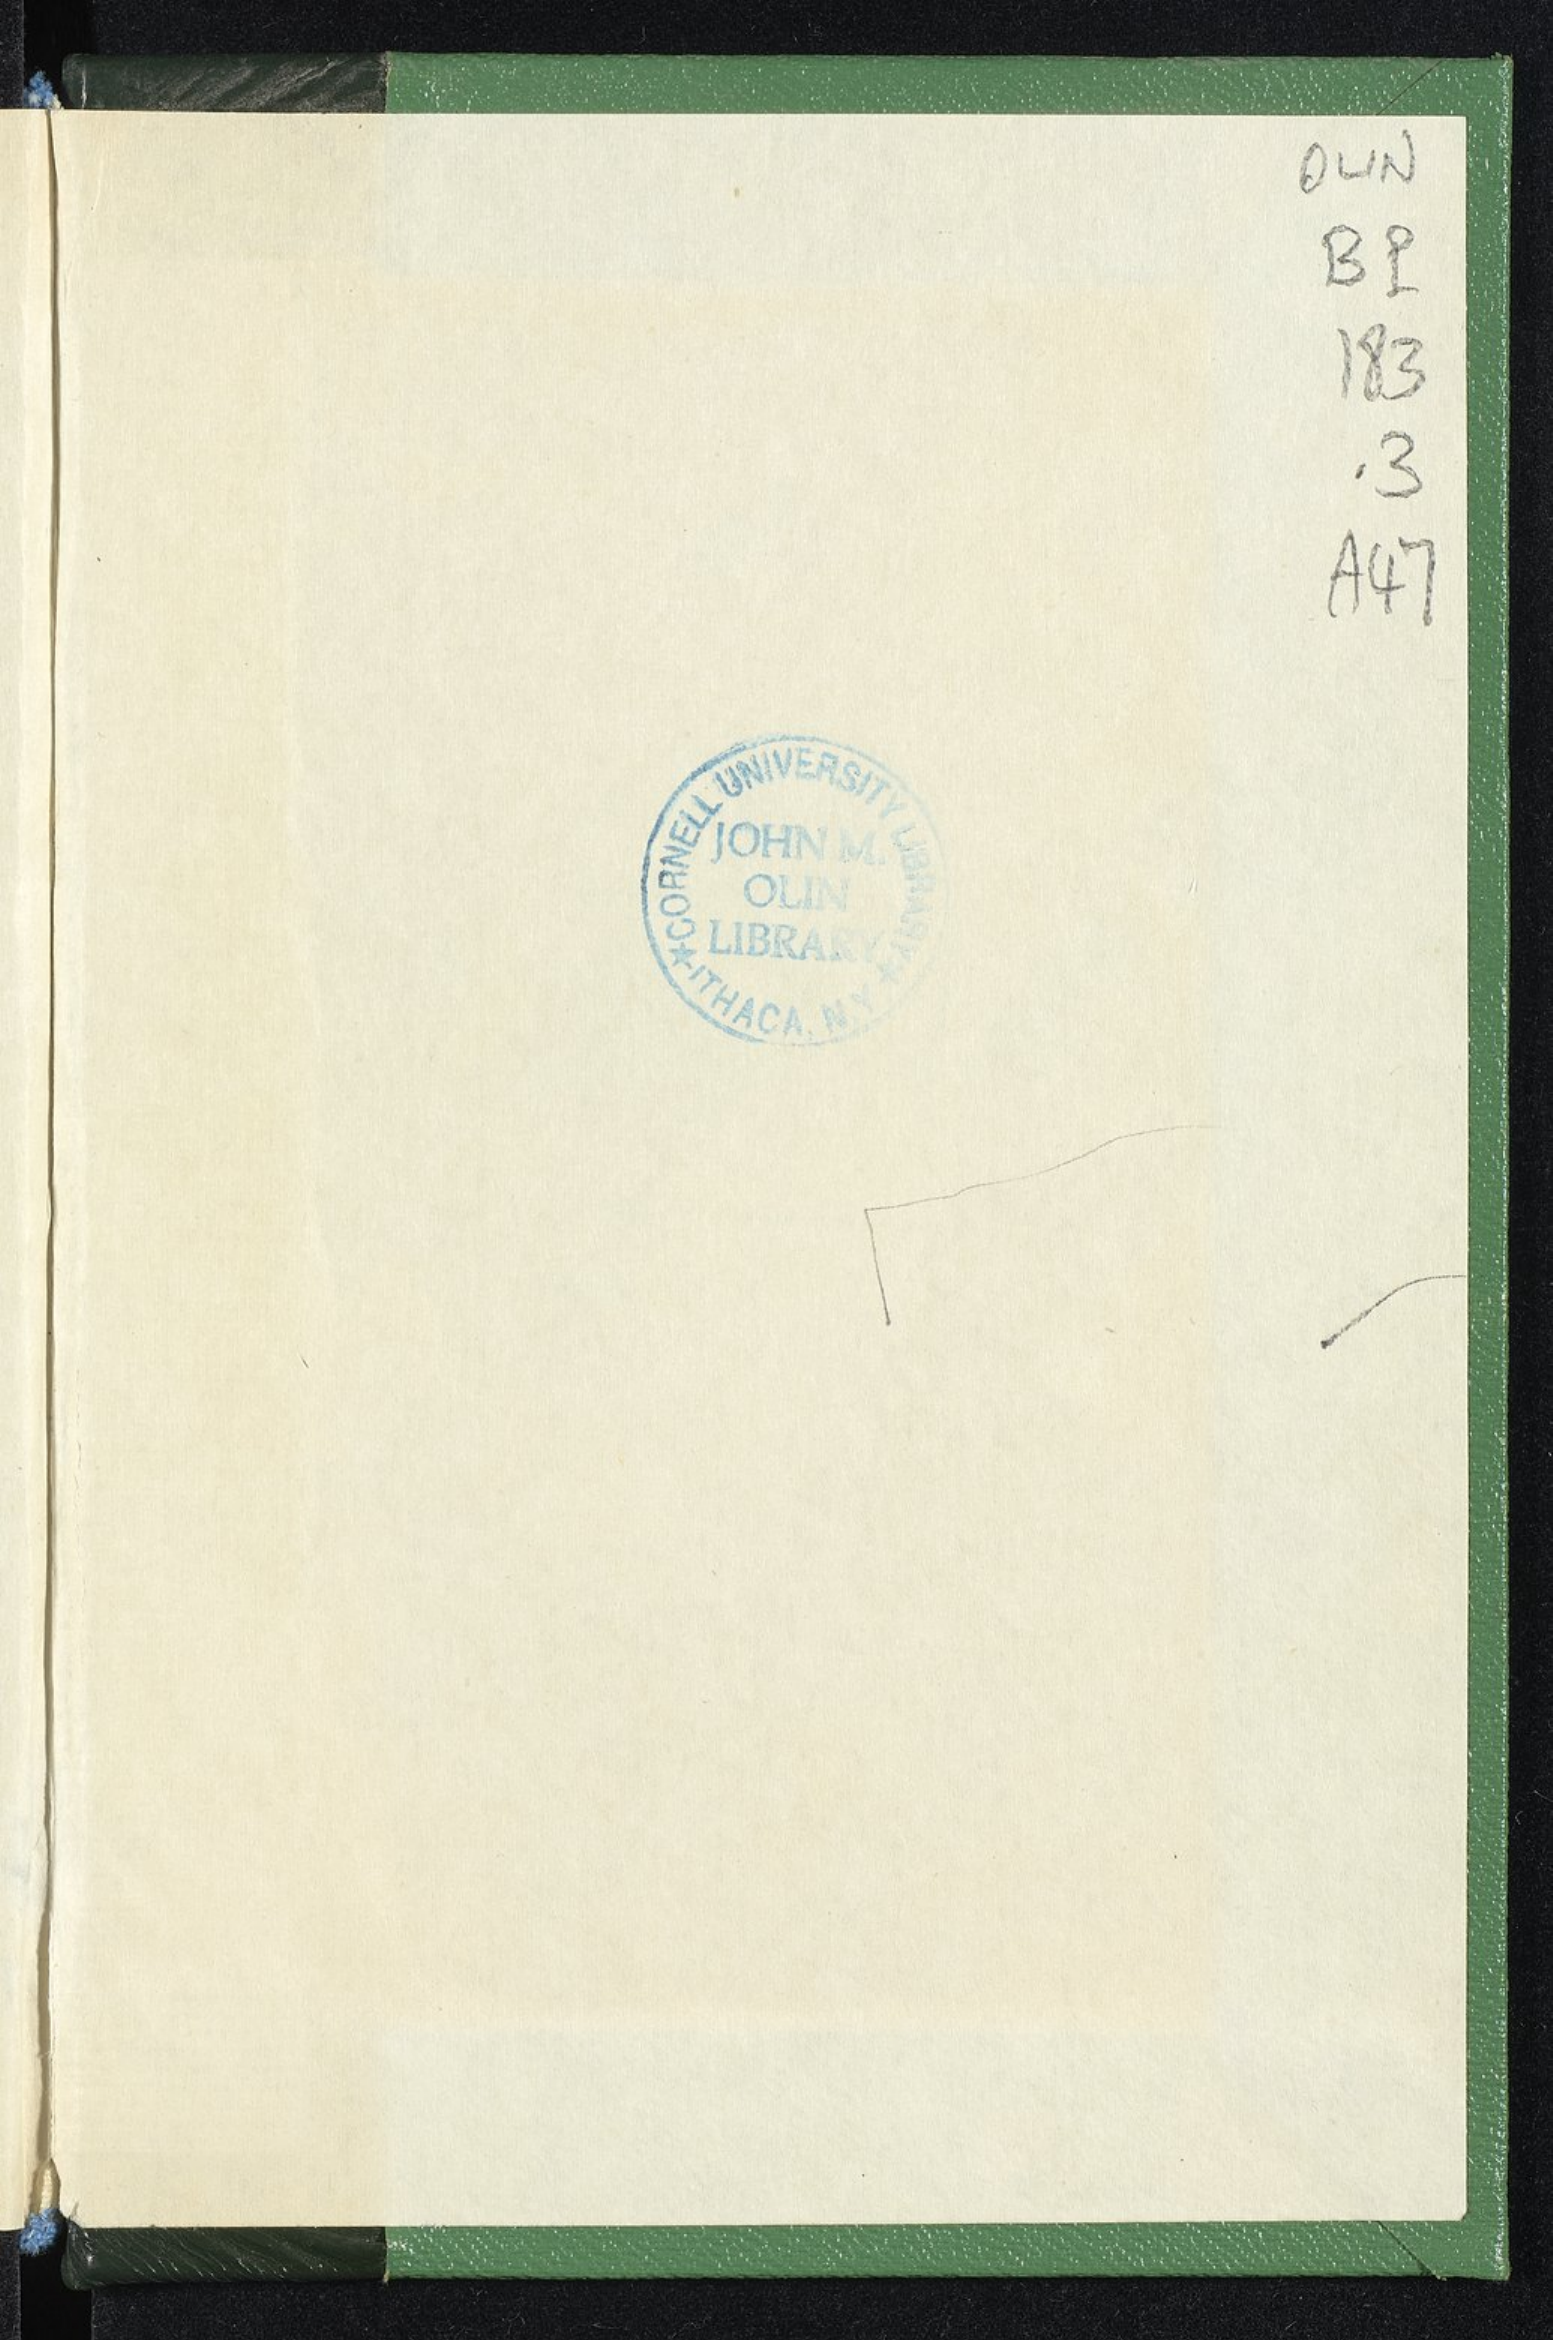 OLIN
BP
183
.3
A47
★ CORNELL UNIVERSITY LIBRARY ★
JOHN M.
OLIN
LIBRARY
ITHACA, N.Y.